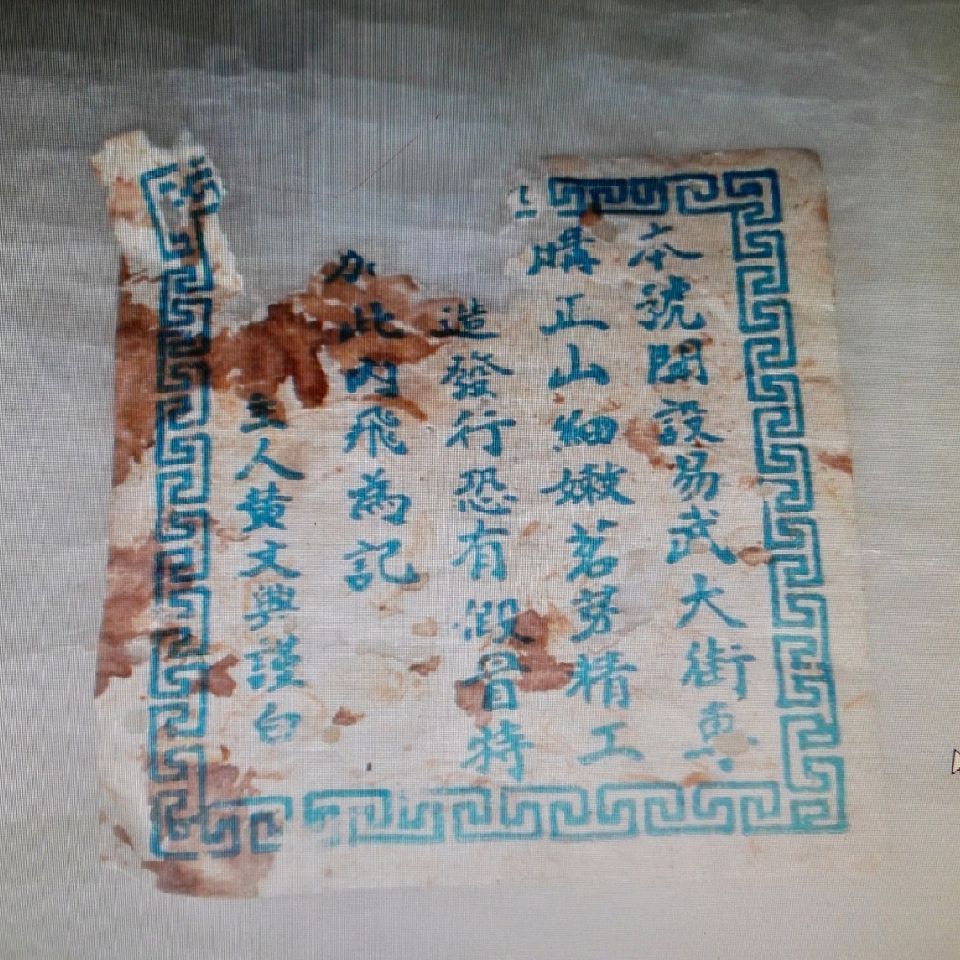 本號開設易武大街專
購正山細嫩茗芽精工
造發行恐有假冒特
加此內飛為記
主人黄文興謹白